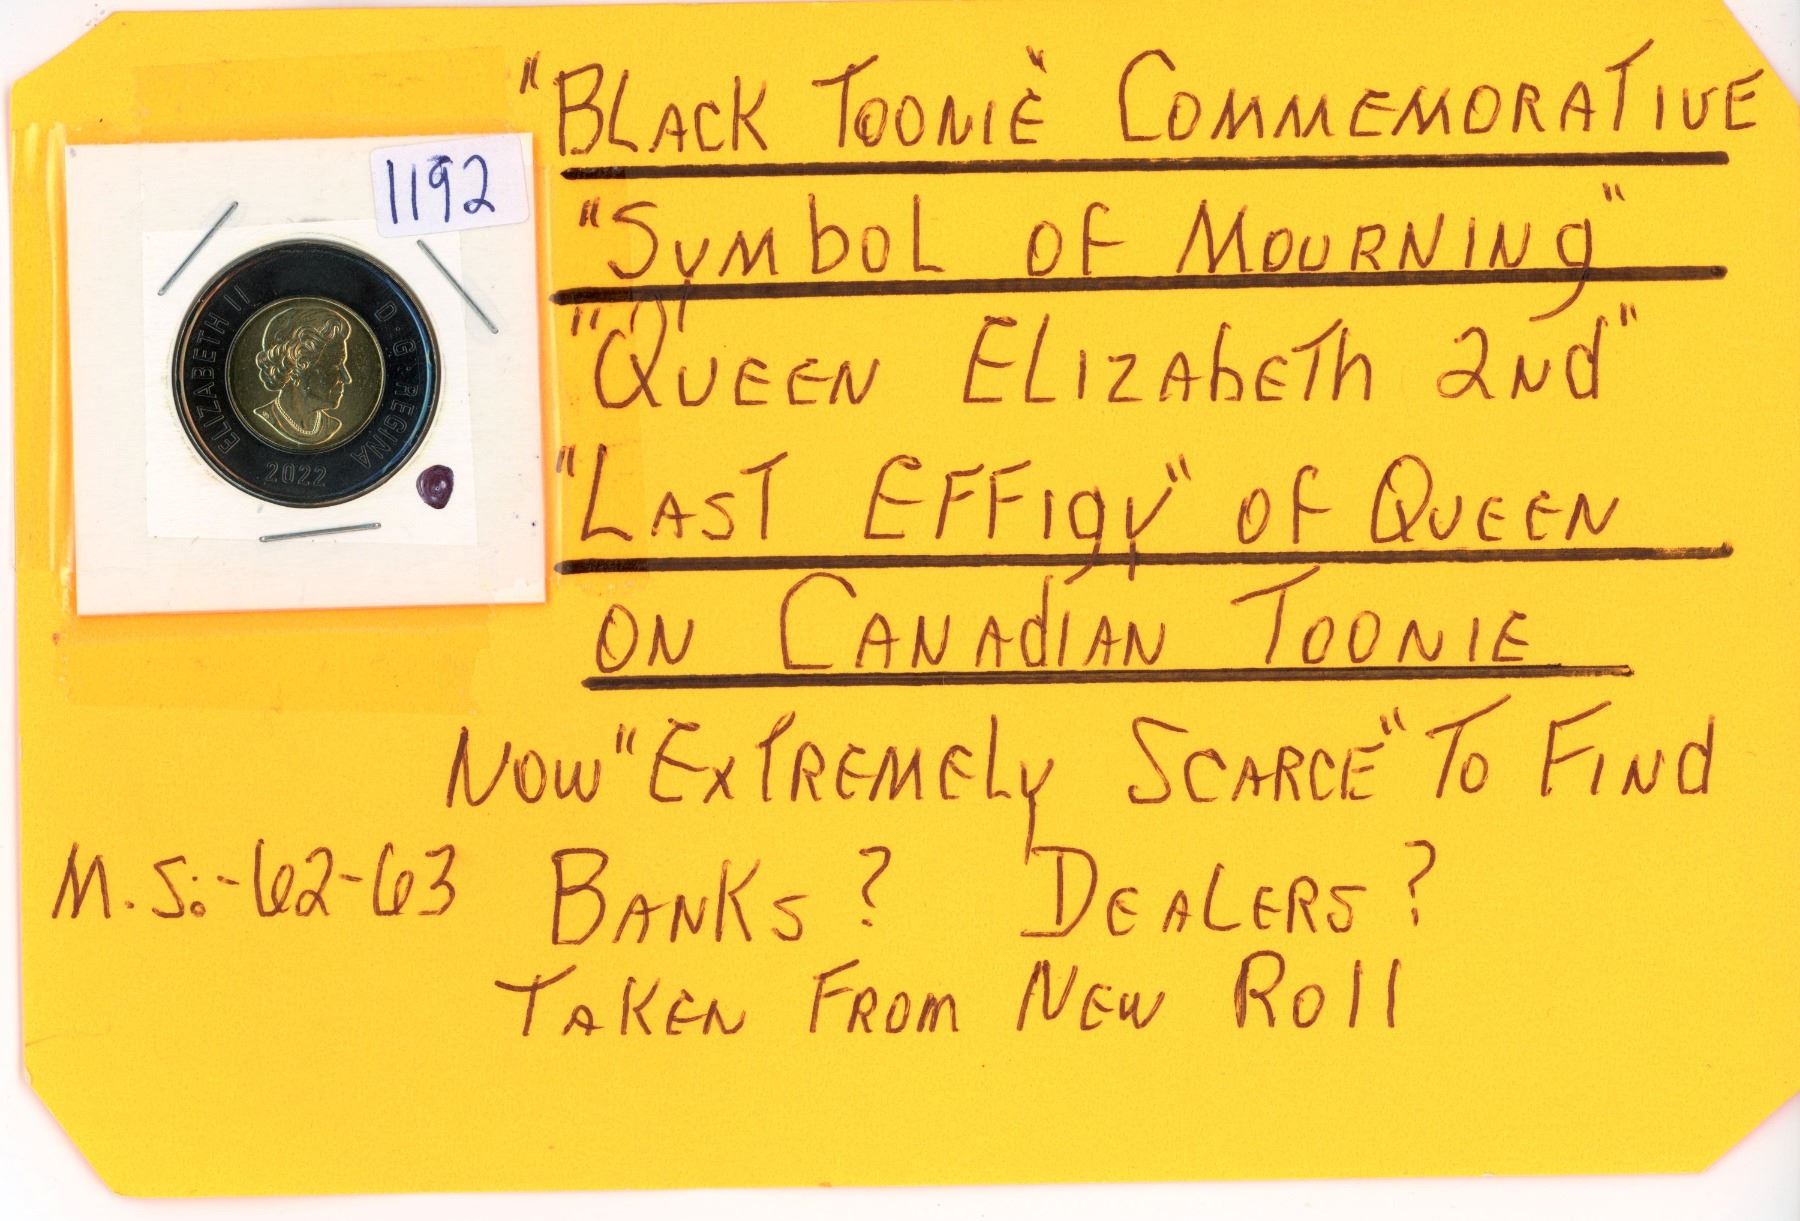 1192
ELIZABETH II D·G·REGINA
2022
"BLACK TOONIE" COMMEMORATIVE
"SYMBOL OF MOURNING"
"QUEEN ELIZABETH 2ND"
"LAST EFFIGY" OF QUEEN
ON CANADIAN TOONIE
NOW "EXTREMELY SCARCE" TO FIND
M.S.:-62-63 BANKS? DEALERS?
TAKEN FROM NEW ROLL